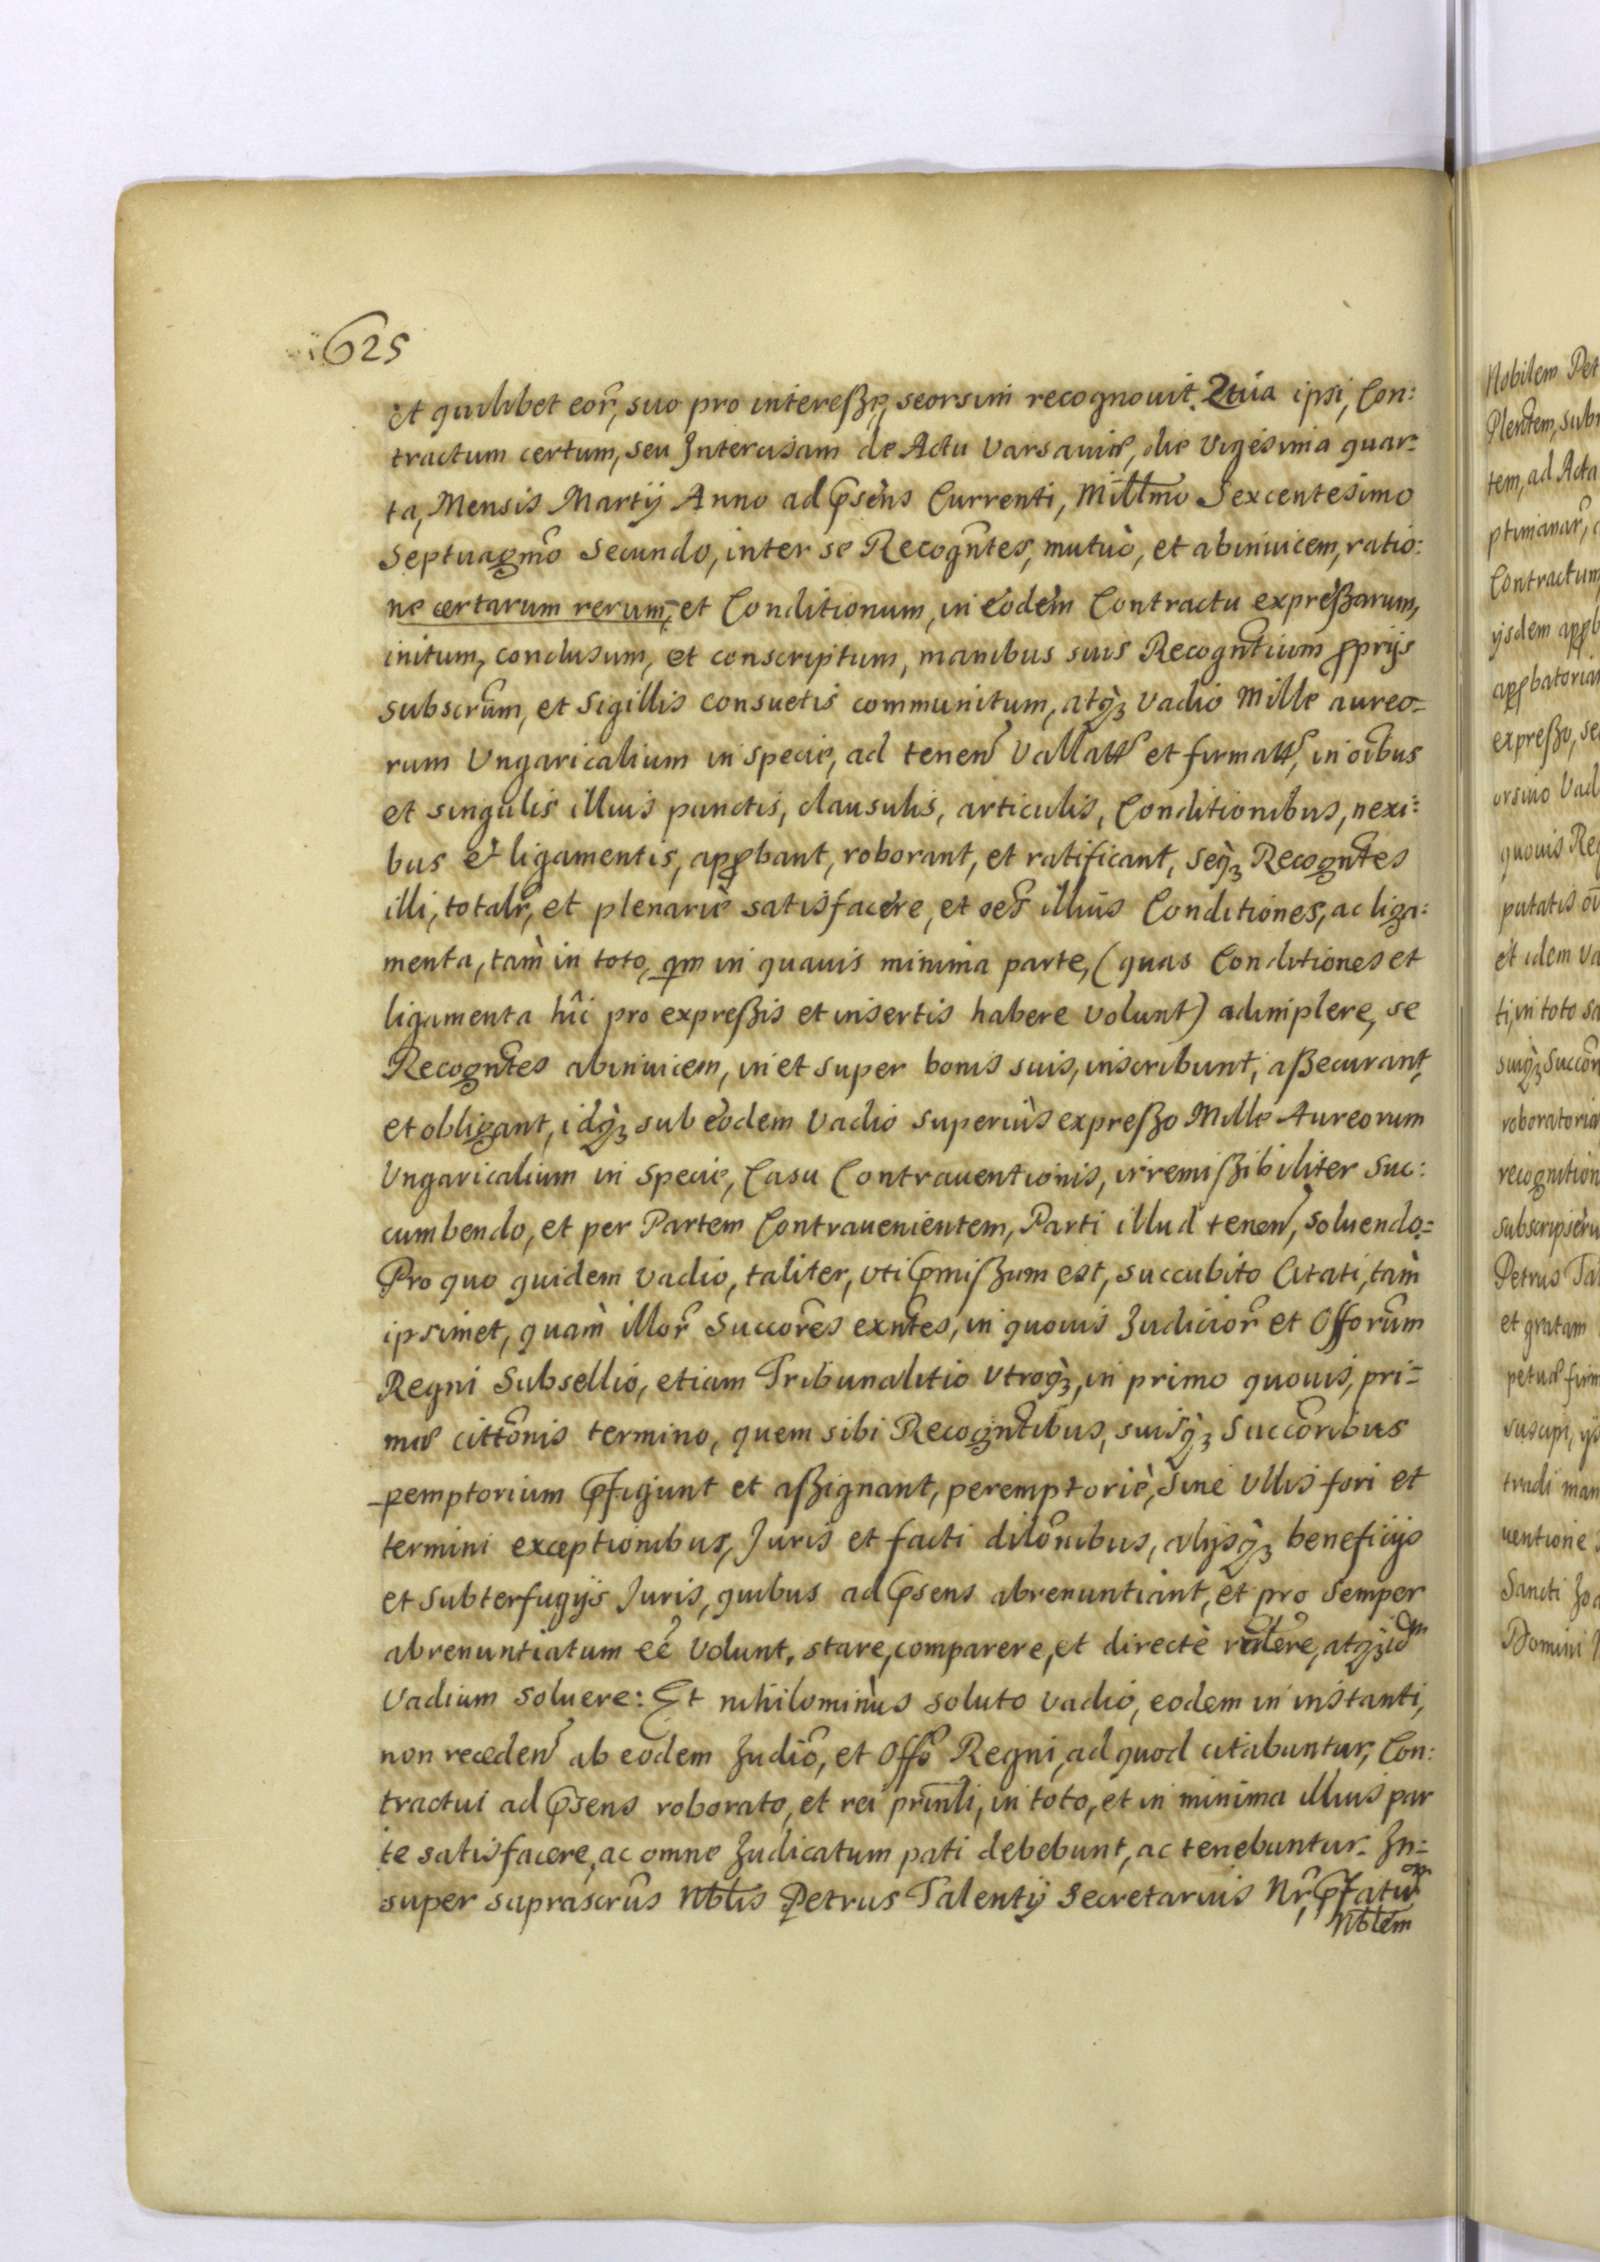 625
et quilibet eor̃, suo pro intereße, seorsim recognovit. Qtia ipsi, Con:
tractum certum, seu Intercisam de Actu Varsaviæ, die Vigesima quar-
ta, Mensis Martij Anno ad p̃sens Currenti, Mill̃mo Sexcentesimo
Septuagm̃o Secundo, inter se Recogñtes, mutuò, et abinvicem, ratio:
ne certarum rerum, et Conditionum, in eodem Contractu expreßarum,
initum, conclusum, et conscriptum, manibus suis Recogñtium p̱prijs
subscrũm, et Sigillis consuetis communitum, atq̀ꝫ Vadio Mille aureo-
rum Ungaricalium in specie, ad tenen̄ Vallatt̃ et firmatt̃, in oĩbus
et singulis illius punctis, clausulis, articulis, Conditionibus, nexi:
bus et ligamentis, app̱bant, roborant, et ratificant, seq̀ꝫ Recogñtes
illi, totalr̃, et plenariè satisfacere, et oẽs illius Conditiones, ac liga:
menta, tam̀ in toto, qm in quavis minima parte, (quas Conditiones et
ligamenta hîc pro expreßis et insertis habere volunt) adimplere, se
Recogñtes abinvicem, in et super bonis suis, inscribunt, aßecurant,
et obligant, idq̀ꝫ sub eodem Vadio superiùs expreßo Mille Aureorum
Ungaricalium in Specie, Casu Contraventionis, irremißibiliter suc:
cumbendo, et per Partem Contravenientem, Parti illud tenen̄, solvendo.=
Pro quo quidem Vadio, taliter, uti p̃mißum est, succubito Citati, tam̀
ipsimet, quam̀ illor̃ Succor̃es exñtes, in quovis Judicior̃ et Offor̃um
Regni Subsellio, etiam Tribunalitio Utroq̀ꝫ, in primo quovis, pri=
mæ citt̃onis termino, quem sibi Recogñtibus, suisq̀ꝫ Succor̃ibus
p̱emptorium p̃figunt et aßignant, peremptoriè, sine Ullis fori et
termini exceptionibus, Juris et facti dilõnibus, alijsq̀ꝫ beneficijs
et subterfugijs Juris, quibus ad p̃sens abrenuntiant, et pro semper
abrenuntiatum eẽ Volunt, stare, comparere, et directè rñdere, atq̀ꝫ idm
Vadium solvere: Et nihilominùs soluto vadio, eodem in instanti,
non receden̄ ab eodem Judiõ, et Offõ Regni, ad quod citabuntur, Con:
tractui ad p̃sens roborato, et rei prinl̃i, in toto, et in minima illius par
te satisfacere, ac omne Judicatum pati debebunt, ac tenebuntur. In=
super suprascrũs Nbl̃is Petrus Talentij Secretarius Nr̃, p̃fatum
Nbl̃em